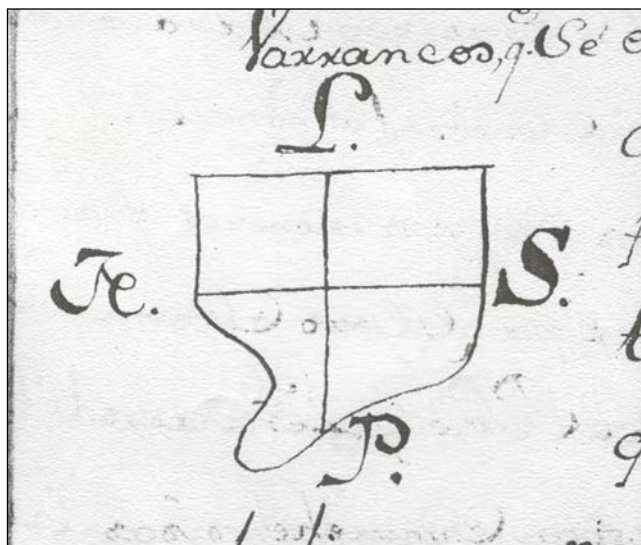 Varrancos, q.e Se
L.
N.
S.
P.